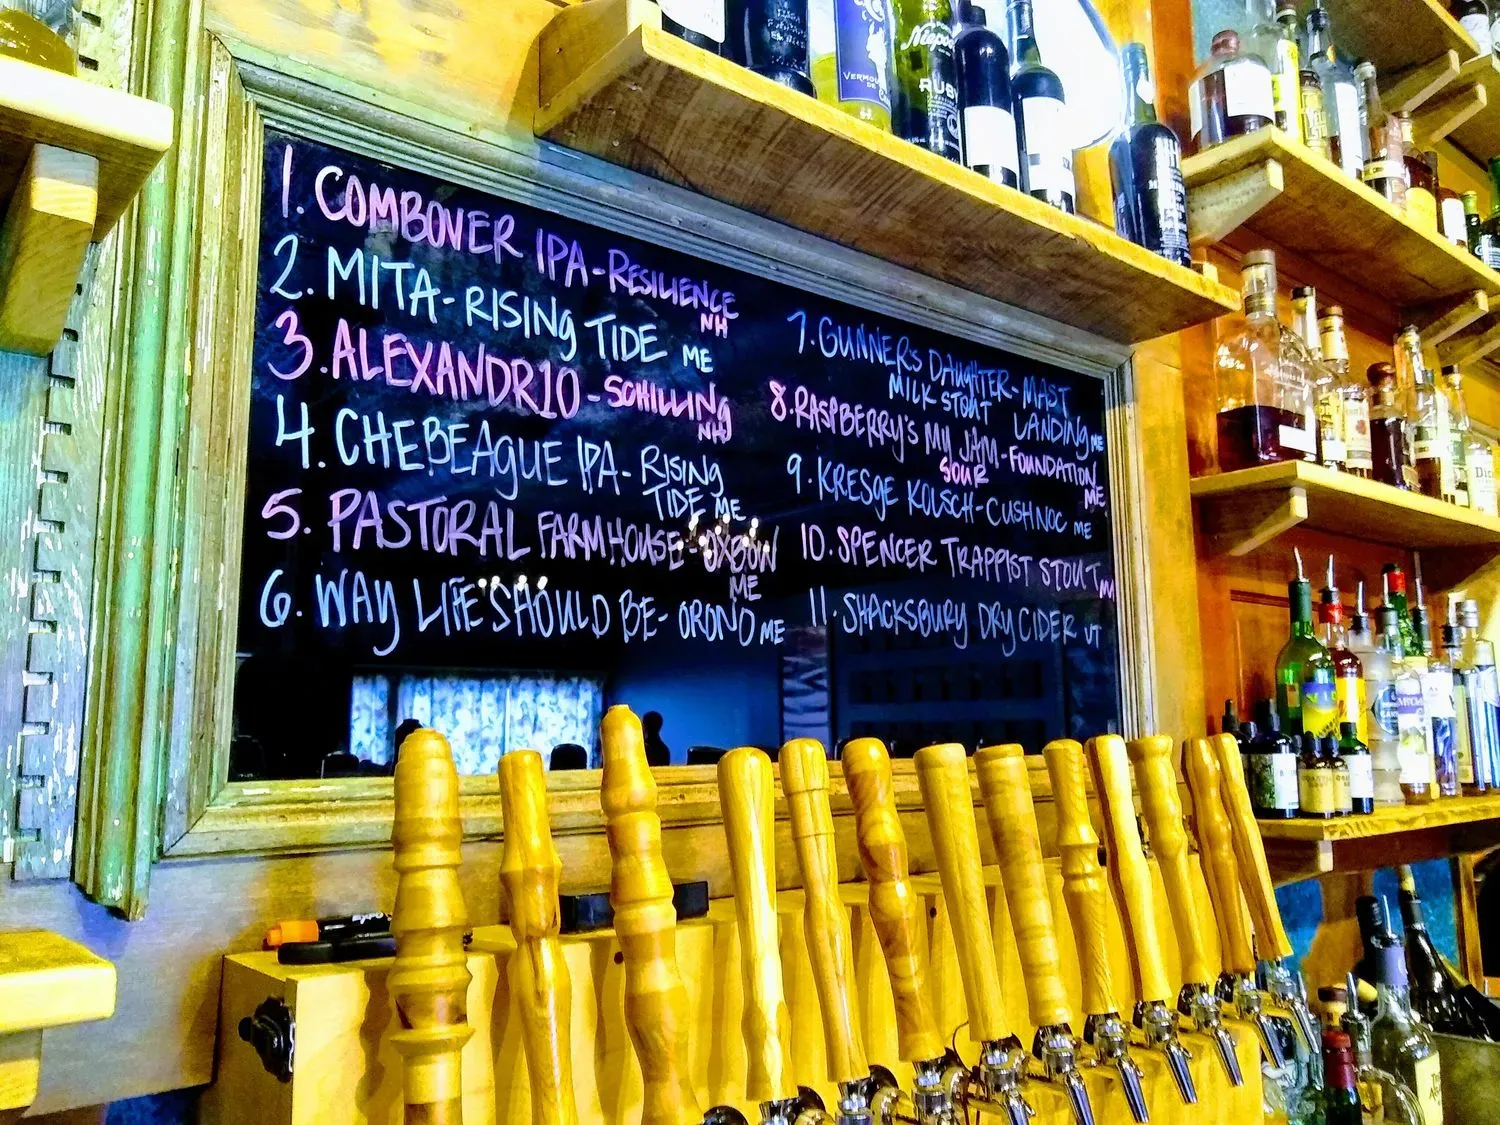 1. COMBOVER IPA - RESILIENCE
NH
2. MITA - RISING TIDE ME
3. ALEXANDR10 - SCHILLING
NH
4. CHEBEAGUE IPA - RISING
TIDE ME
5. PASTORAL FARMHOUSE - OXBOW
ME
6. WAY LIFE SHOULD BE - ORONO ME
7. GUNNER'S DAUGHTER - MAST
MILK STOUT LANDING ME
8. RASPBERRY'S MY JAM - FOUNDATION
SOUR ME
9. KRESGE KOLSCH - CUSHNOC ME
10. SPENCER TRAPPIST STOUT MA
11. SHACKSBURY DRY CIDER VT
Niepoort
RUBY
VERMOUTH
EXPO